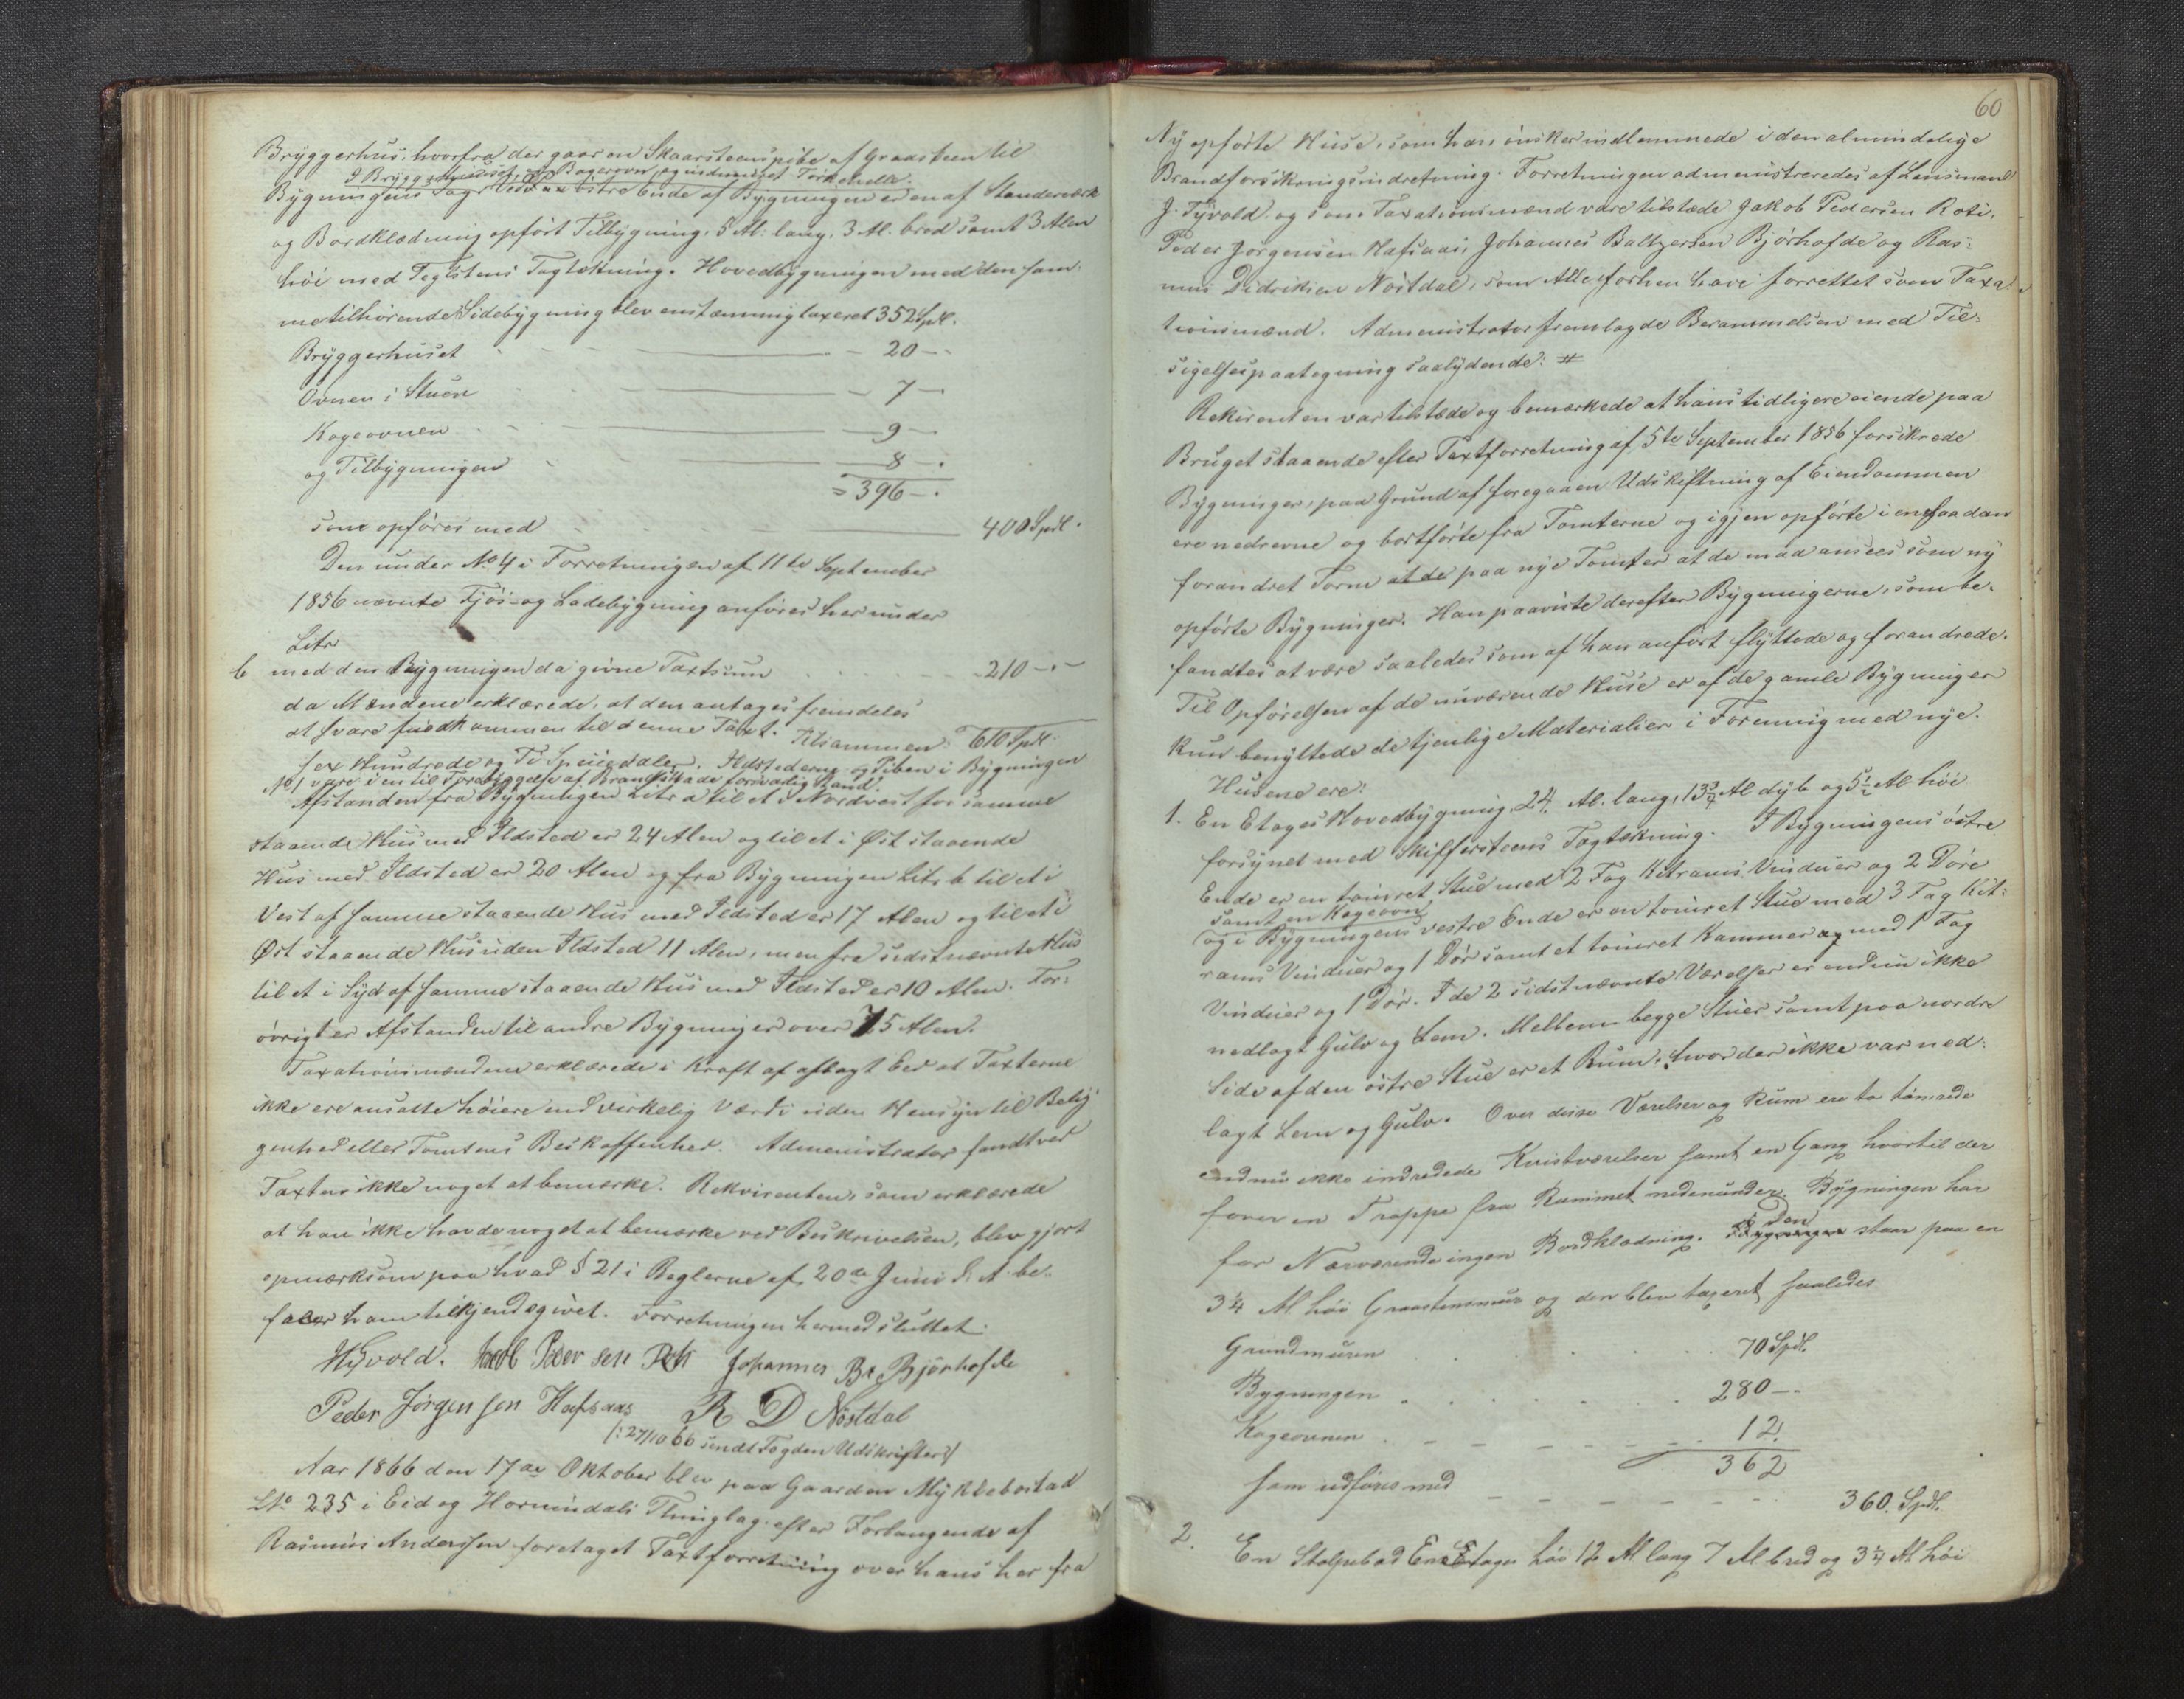 Bryggerhus, hvorfra der gaar en Skaarsteenspibe af Graasteen til
I Bryggerhuset er Bagerovn og indmuret Tørkehelle.
Bygningens Tag. Ved østre Ende af Bygningen er en af Standerværk
og Bordklædning opført Tilbygning, 5 Al: lang, 3 Al. bred samt 3 Alen
høi med Teglsteens Tagtækning. Hovedbygningen med den sam-
me tilhørende Sidebygning blev enstæmmig taxeret 352 Spd.
Bryggerhuset 20 -
Ovnen i Stuen 7 -
Kogeovnen 9 -
og Tilbygningen 8 -
= 396 -
som opføres med 400 Spd.
Den under No 4 i Forretningen af 11te September
1856 nævnte Fjøs- og Ladebygning anføres her under
Litr
b med den Bygningen da givne Taxtsum 210 -
da Mændene erklærede, at den antages fremdeles
at svare fuldkommen til denne Taxt. Tilsammen: 610 Spd.
sex Hundrede og Ti Speciedaler. Ildstederne og Piben i Bygningen
No 1 vare i en til Forebyggelse af Brandskade forsvarlig Stand.
Afstanden fra Bygningen Litr a til et i Nordvest for samme
staaende Huus med Ildsted er 24 Alen og til et i Øst staaende
Hus med Ildsted er 20 Alen og fra Bygningen Litr b til et i
Vest af samme staaende Hus med Ildsted er 17 Alen og til et i
Øst staaende Hus uden Ildsted 11 Alen, men fra sidstnævnte Hus
til et i Syd af samme staaende Hus med Ildsted er 10 Alen. For-
øvrigt er Afstanden til andre Bygninger over 75 Alen.
Taxationsmændene erklærede i Kraft af aflagt Eed at Taxterne
ikke ere ansatte høiere end virkelig Værdi uden Hensyn til Belig-
genhed eller Tomtens Beskaffenhed. Administrator fandt ved
Taxten ikke noget at bemærke. Rekvirenten, som erklærede
at han ikke havde noget at bemærke ved Beskrivelsen, blev gjort
opmærksom paa hvad § 21 i Reglerne af 20de Juni d. A. be-
faler ham tilkjendegivet. Forretningen hermed sluttet.
HTyvold. Jacob Peder sen Roti Johannes B. Bjørhofde
Peder Jørgen sen Hafsaas R D Nøstdal
/: 27/10 66 sendt Fogden Udskrifter :/
Aar 1866 den 17de Oktober blev paa Gaarden Myklebostad
L No 235 i Eid og Hornindals Thinglag efter Forlangende af
Rasmus Anderssen foretaget Taxtforretning over hans her fra
60
Ny opførte Huse, som han ønsker indlemmede i den almindelige
Brandforsikringsindretning. Forretningen administreredes af Lensmand
J. Tyvold, og som Taxationsmænd vare tilstæde Jakob Pedersen Roti,
Peder Jørgensen Hafsaas, Johannes Baltzersen Bjørhofde og Ras-
mus Didriksen Nøstdal, som Alle forhen have forrettet som Taxa-
tionsmænd. Administrator fremlagde Berammelsen med Til-
sigelsespaategning saalydende: #
Rekirenten var tilstæde og bemærkede at hans tidligere eiende paa
Bruget staaende efter Taxtforretning af 5te September 1856 forsikrede
Bygninger, paa Grund af foregaaen Udskiftning af Eiendommen
ere nedrevne og bortførte fra Tomterne og igjen opførte i en saadan
forandret Form at de paa nye Tomter at de maa ansees som ny
opførte Bygninger. Han paaviste derefter Bygningerne, som be-
fandtes at være saaledes som af ham anført flyttede og forandrede.
Til Opførelsen af de nuværende Huse er af de gamle Bygninger
kun benyttede de tjenlige Materialier i Forening med nye.
Husene ere:
1. En Etages Hovedbygning, 24 Al. lang, 13 3/4 Al dyb og 5 1/2 Al høi
forsynet med Skiffersteens Tagtækning. I Bygningens østre
Ende er en tømret Stue med 2 Fag Kitrams Vinduer og 2 Døre
samt en Kogeovn
og i Bygningens vestre Ende er en tømret Stue med 3 Fag Kit-
rams Vinduer og 1 Dør samt et tømret Kammer og med 1 Fag
Vinduer og 1 Dør. I de 2 sidstnævnte Værelser er endnu ikke
nedlagt Gulv og Lem. Mellem begge Stuer samt paa nordre
Side af den østre Stue er et Rum, hvor der ikke var ned-
lagt Lem og Gulv. Over disse Værelser og Rum ere to tømrede
endnu ikke indredede Kvistværelser samt en Gang hvortil der
fører en Trappe fra Rummet nedenunder. Bygningen har
for Nærværende ingen Bordklædning. Bygningen og Den staar paa en
3 1/4 Al høi Graasteensmur og den blev taxeret saaledes
Grundmuren 70 Spd.
Bygningen 280 -
Kogeovnen 12.
362
som udføres med 360. Spd.
2. En Stolpebod En Etages høi 12 Al lang 7 Al bred og 3 1/4 Al høi